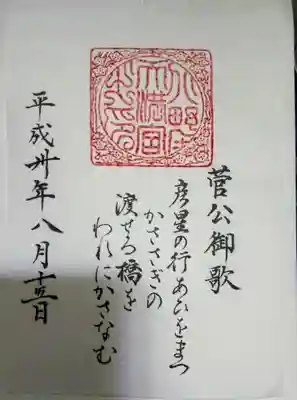 菅公御歌
彦星の行あひをまつ
かささぎの
渡せる橋を
われにかさなむ
平成卅年八月十五日